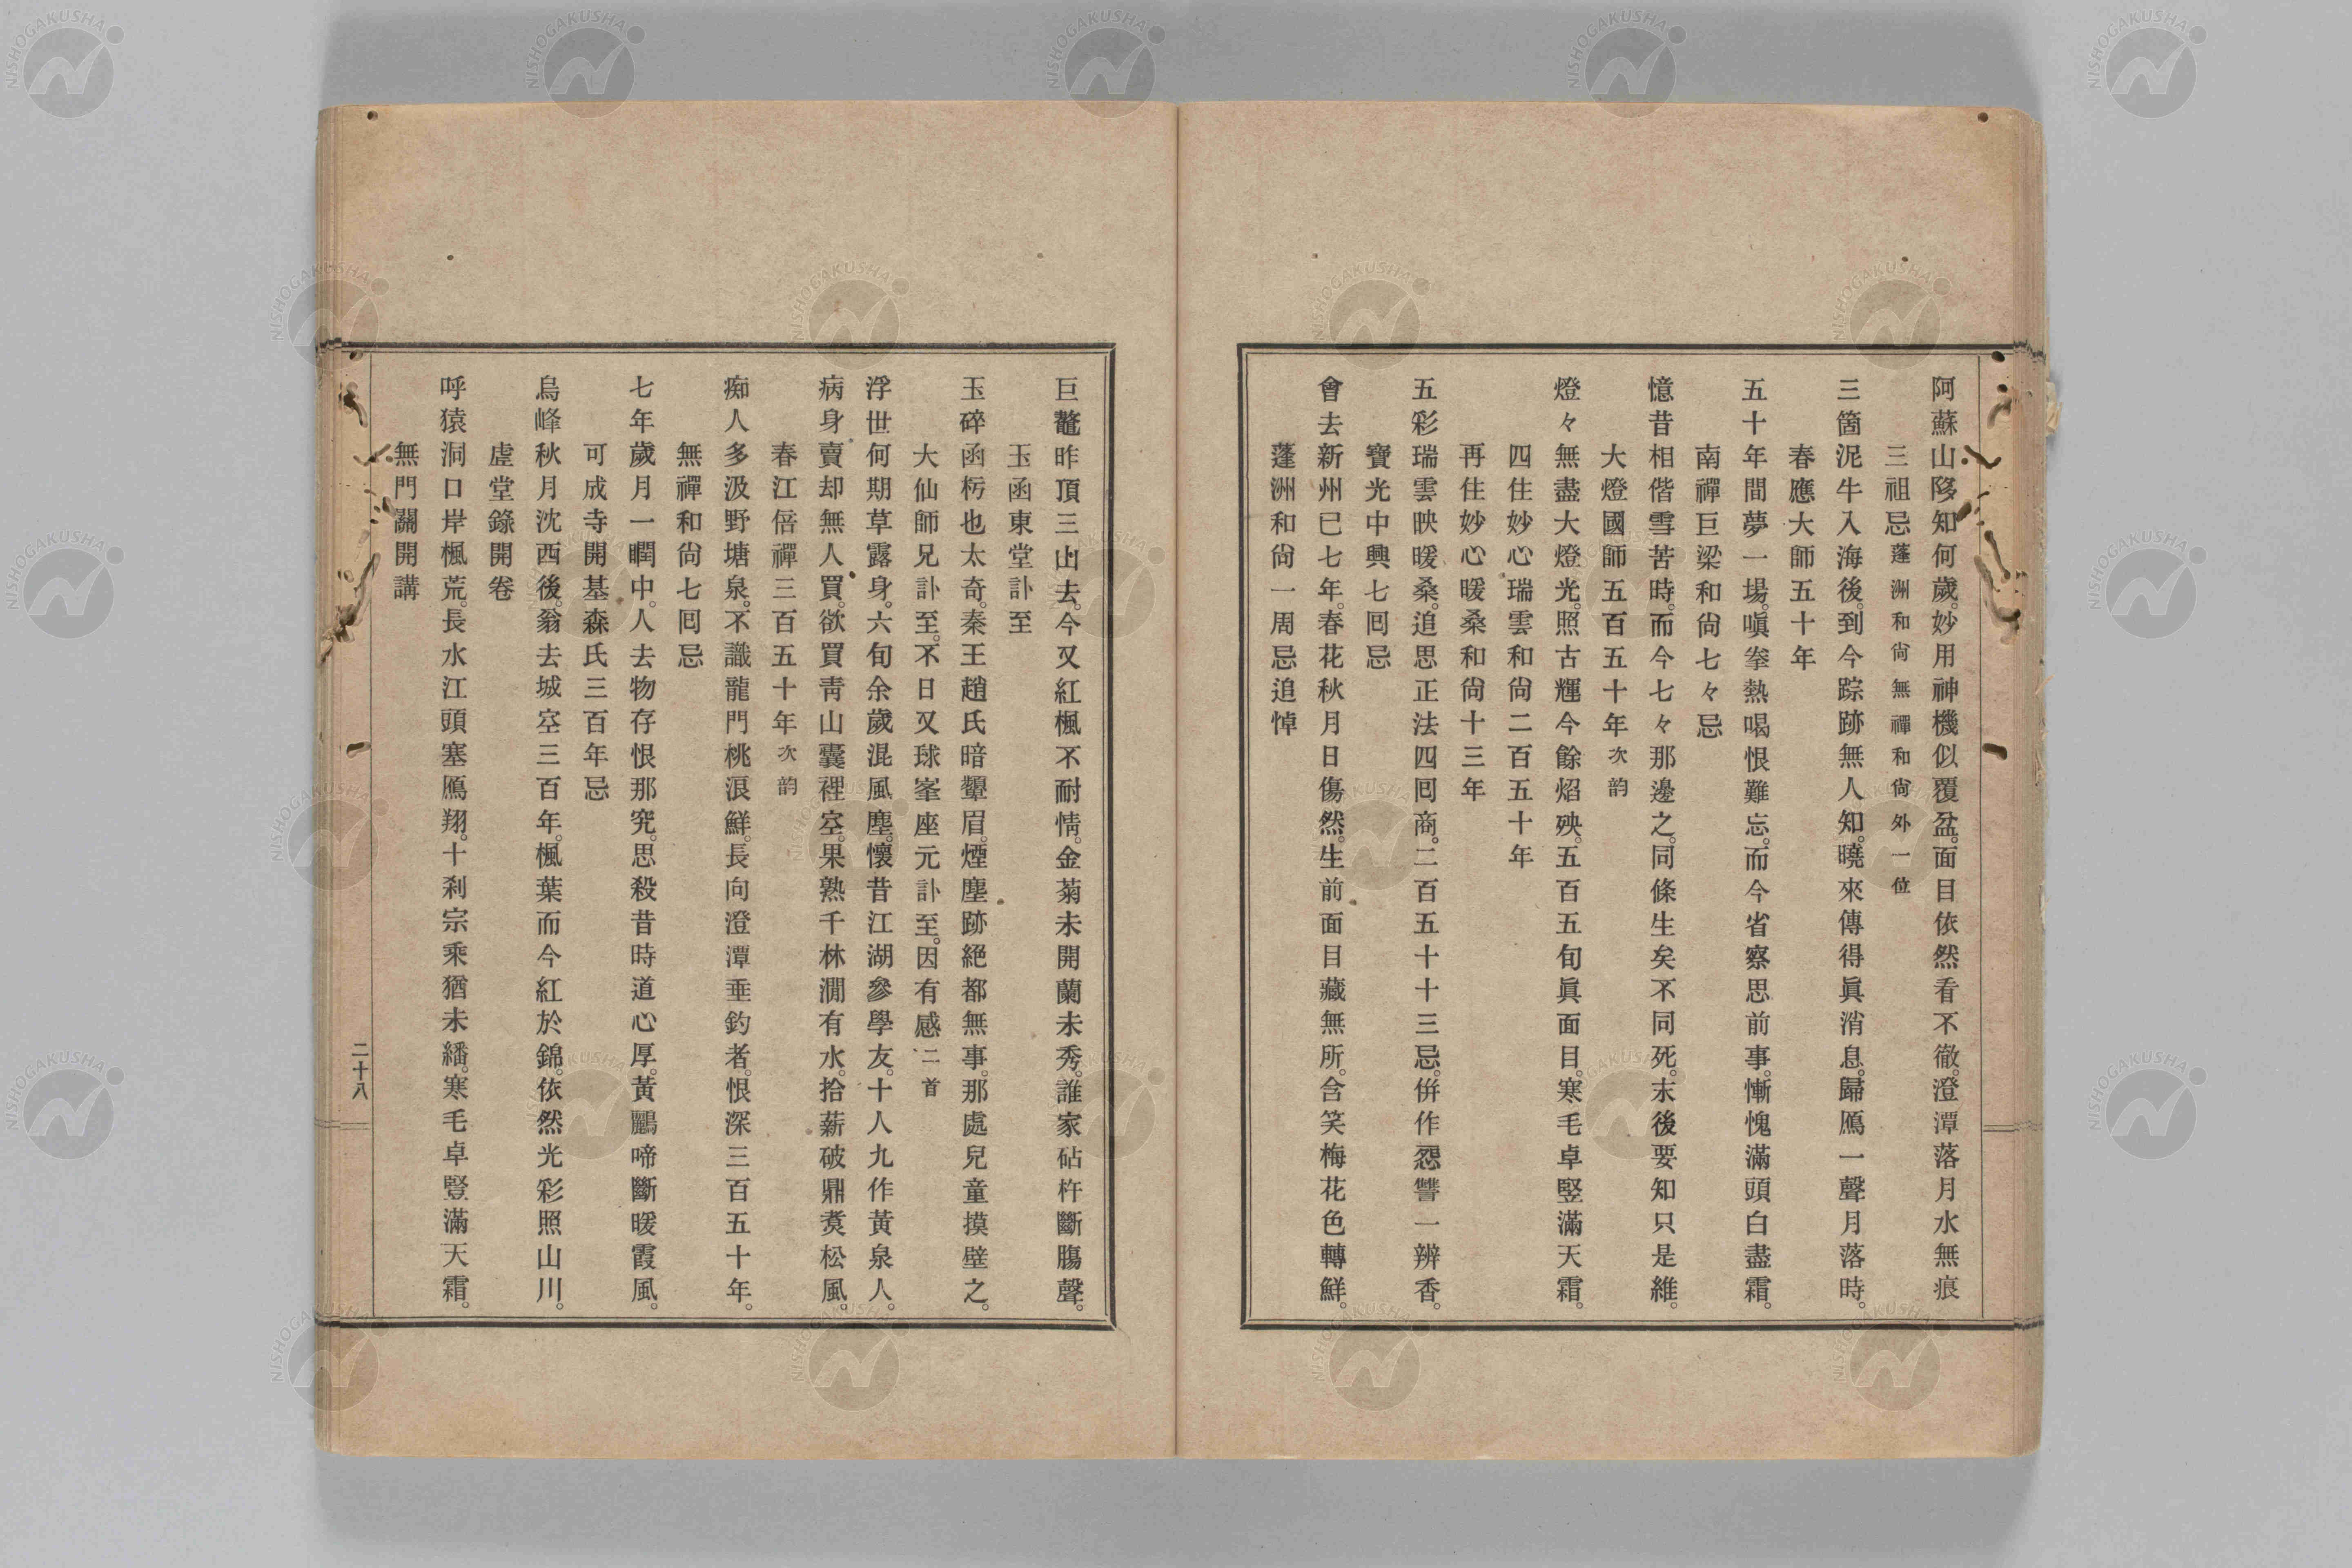 阿蘇山移知何歲。妙用神機似覆盆。面目依然看不徹。澄潭落月水無痕
三祖忌蓬洲和尙無禪和尙外一位
三箇泥牛入海後。到今踪跡無人知。曉來傳得眞消息。歸鴈一聲月落時。
春應大師五十年
五十年間夢一場。嗔拳熱喝恨難忘。而今省察思前事。慚愧滿頭白盡霜。
南禪巨梁和尙七々忌
憶昔相偕雪苦時。而今七々那邊之。同條生矣不同死。末後要知只是維。
大燈國師五百五十年次韵
燈々無盡大燈光。照古輝今餘焰殃。五百五旬眞面目。寒毛卓竪滿天霜。
四住妙心瑞雲和尙二百五十年
再住妙心暖桑和尙十三年
五彩瑞雲映暖桑。追思正法四囘商。二百五十十三忌。併作怨讐一辨香。
寶光中興七囘忌
會去新州已七年。春花秋月日傷然。生前面目藏無所。含笑梅花色轉鮮。
蓬洲和尙一周忌追悼
巨鼇昨頂三山去。今又紅楓不耐情。金菊未開蘭未秀。誰家砧杵斷膓聲。
玉函東堂訃至
玉碎函朽也太奇。秦王趙氏暗顰眉。煙塵跡絕都無事。那處兒童摸壁之。
大仙師兄訃至。不日又球峯座元訃至。因有感二首
浮世何期草露身。六旬余歲混風塵。懷昔江湖參學友。十人九作黃泉人。
病身賣却無人買。欲買靑山囊裡空。果熟千林澗有水。拾薪破鼎煑松風。
春江信禪三百五十年次韵
痴人多汲野塘泉。不識龍門桃浪鮮。長向澄潭垂釣者。恨深三百五十年。
無禪和尙七囘忌
七年歲月一瞤中。人去物存恨那究。思殺昔時道心厚。黃鸝啼斷暖霞風。
可成寺開基森氏三百年忌
烏峰秋月沈西後。翁去城空三百年。楓葉而今紅於錦。依然光彩照山川。
虛堂錄開卷
呼猿洞口岸楓荒。長水江頭塞鴈翔。十刹宗乘猶未繙。寒毛卓豎滿天霜。
無門關開講
二十八